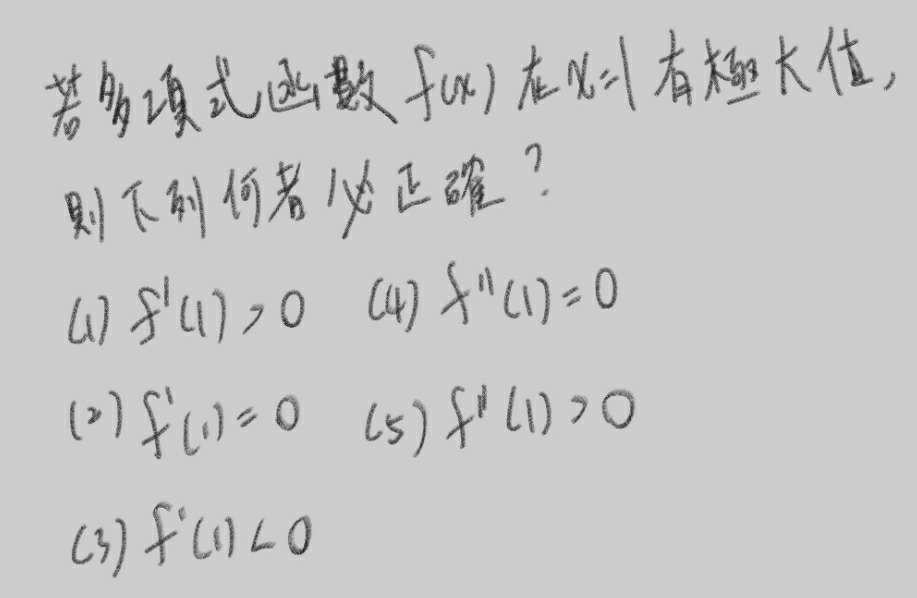 若多項式函數 f(x) 在 x=1 有極大值,
則下列何者必正確?
(1) f'(1)>0 (4) f''(1)=0
(2) f'(1)=0 (5) f''(1)>0
(3) f'(1)<0